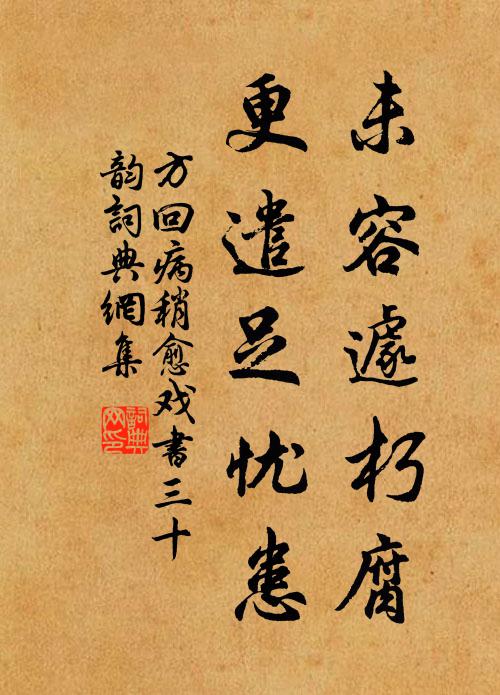 未容遽朽腐
更遣足忧患
方回病稍愈戏书三十
韵词典網集
詞典網印